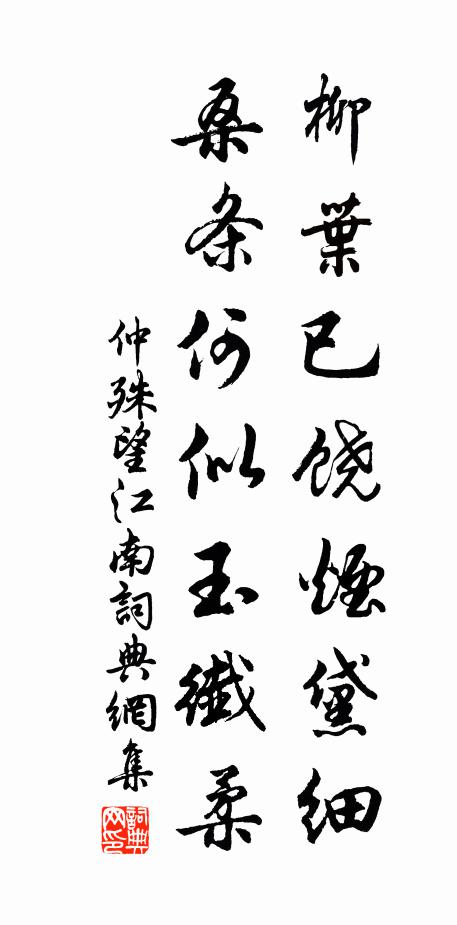 柳葉已饶煙黛細
桑条何似玉纖柔
仲殊望江南詞典網集
詞典网印